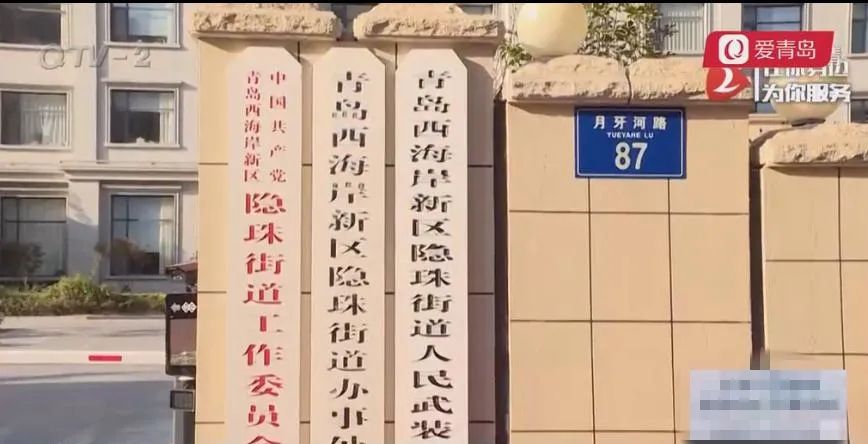 QTV-2
爱青岛
为你服务
中国共产党
青岛西海岸新区
隐珠街道工作委员会
青岛西海岸新区隐珠街道办事
青岛西海岸新区隐珠街道人民武装
月牙河路
YUEYAHE LU
87